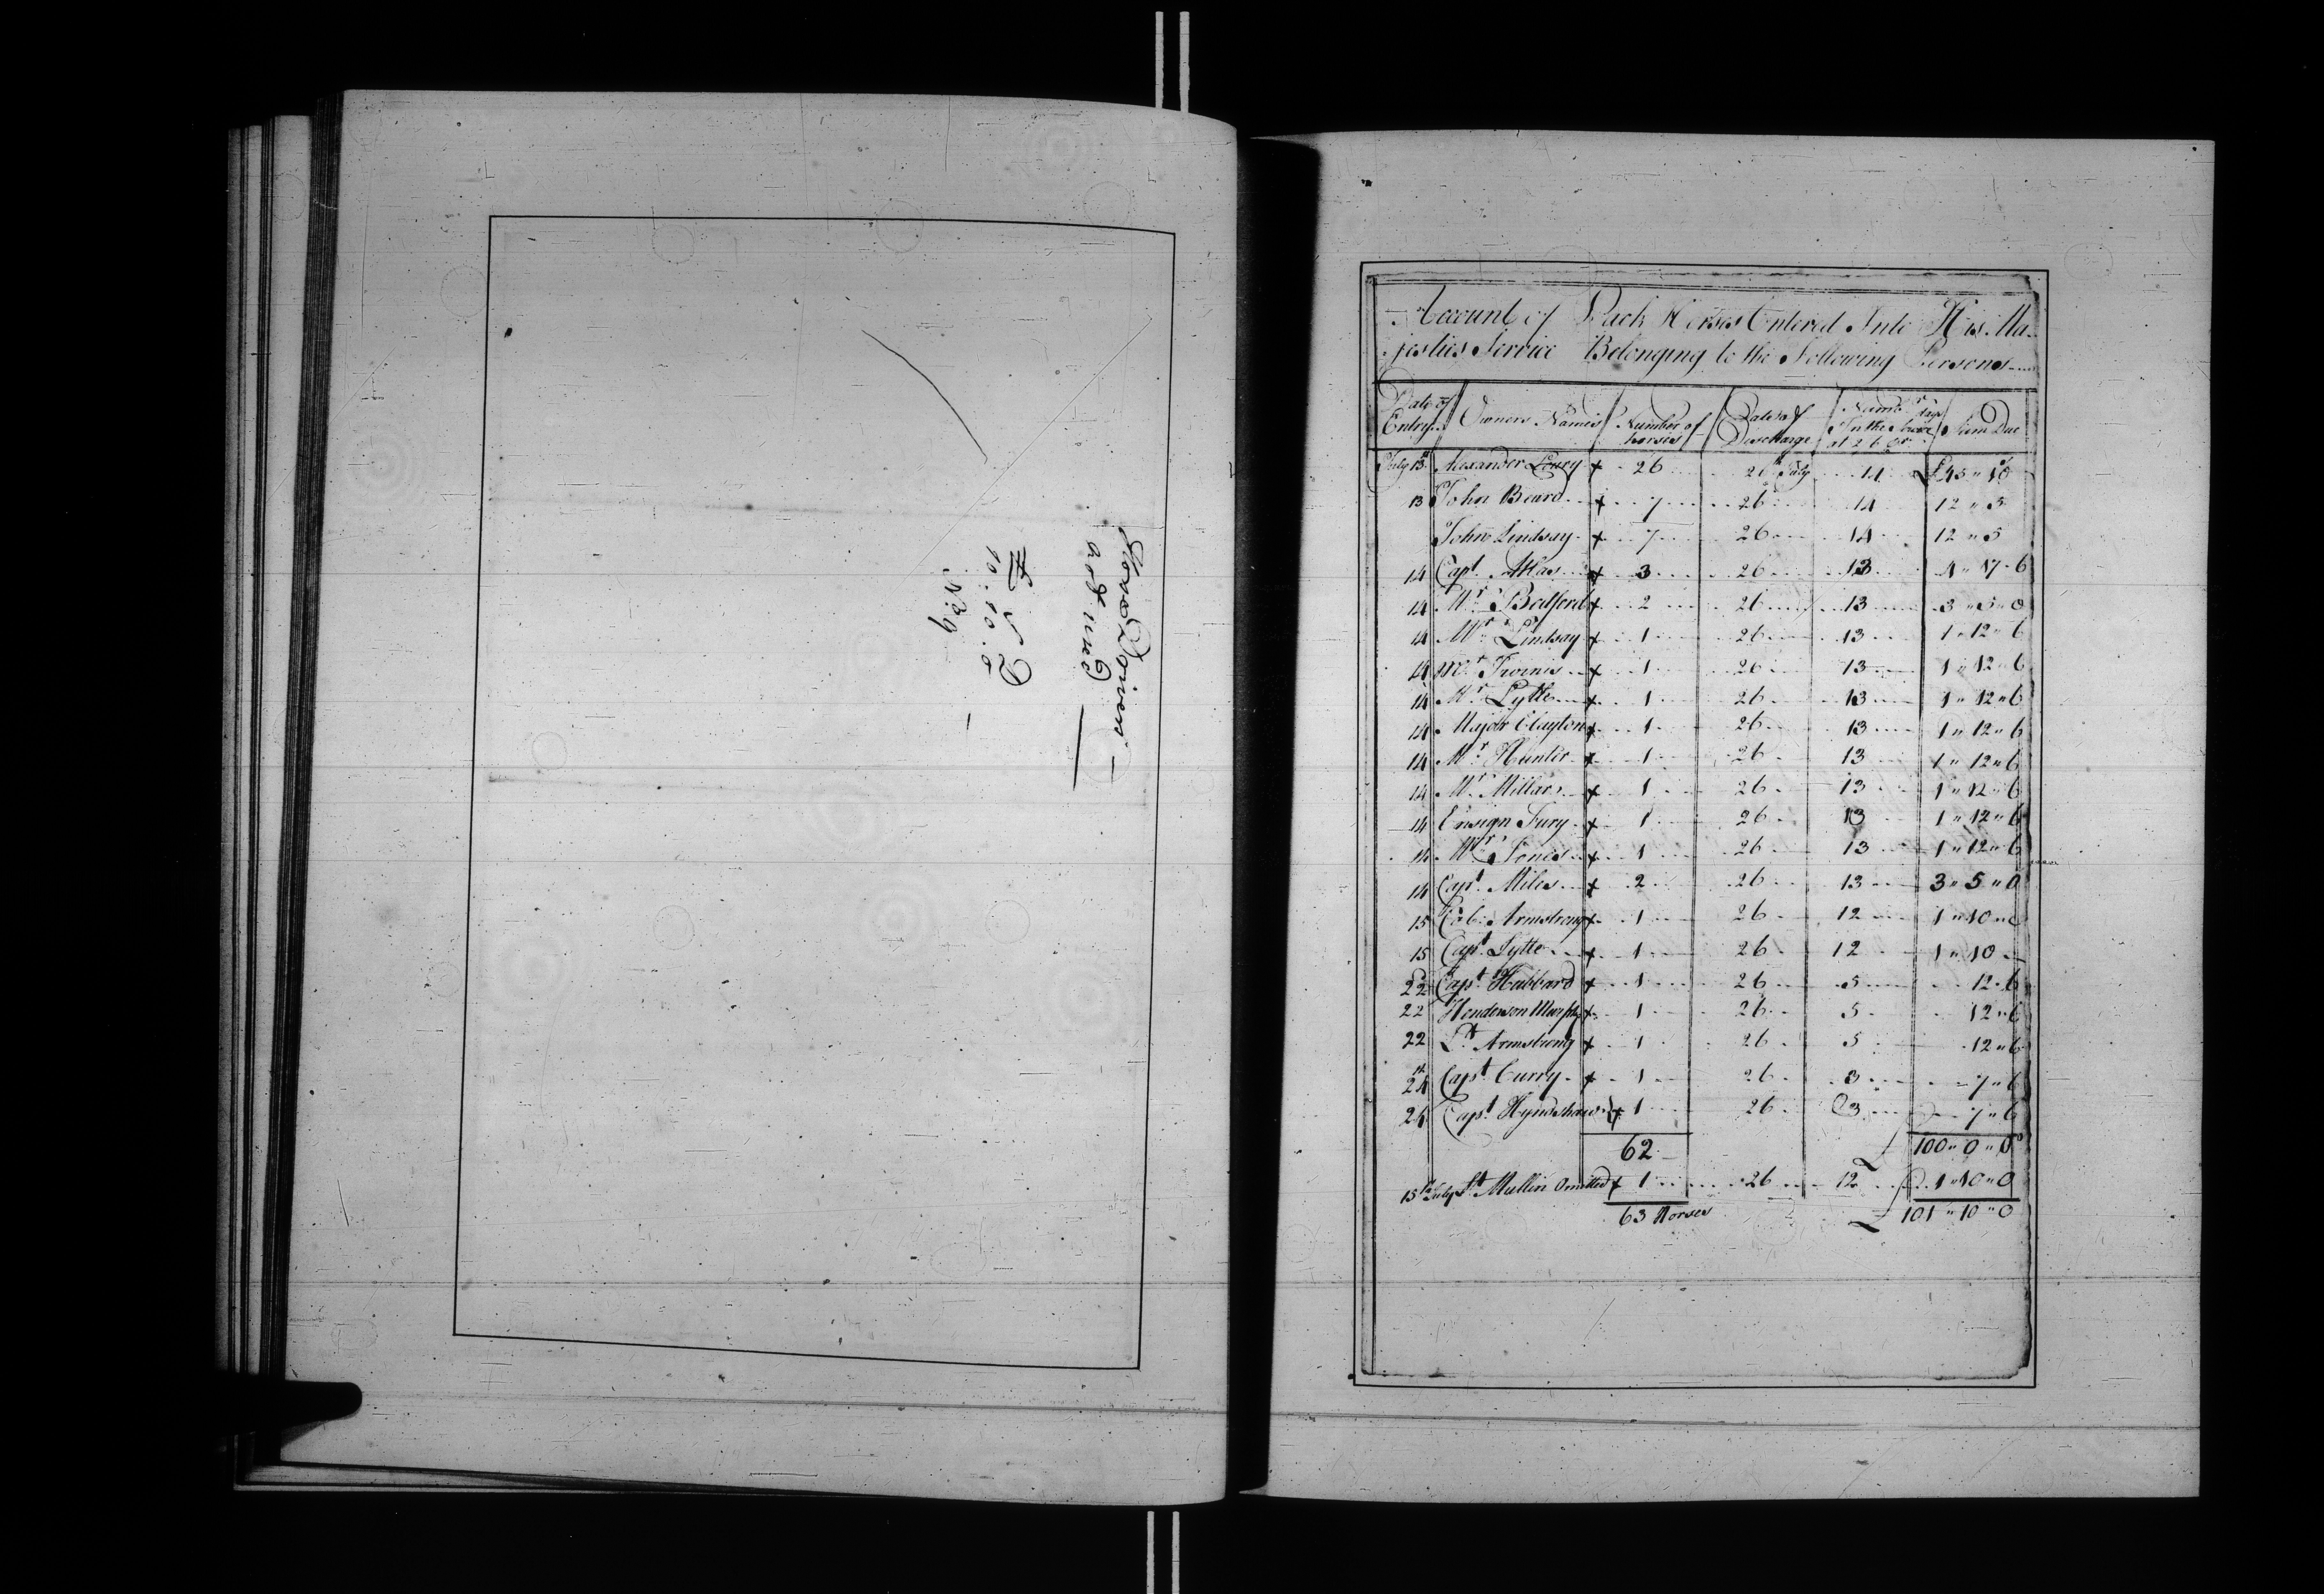 Horse Drivers
Account
£ S D
10..10..0
No 9
Account of Pack Horses Entered Into His Ma-
jesties Service Belonging to the Following Persons
Date of Entry Owners Names Number of horses Date of Discharge Numbr days In the Service at 2/6 pr Sum Due
July 13th Alexander Loury + 26 26th July 14 £45 " 10
13 John Beard + 7 26 14 12 " 5
John Lindsay + 7 26 14 12 " 5
14 Capt. Atlas + 3 26 13 4 " 17 " 6
14 Mr. Bedford + 2 26 13 3 " 5 " 0
14 Mr. Lindsay + 1 26 13 1 " 12 " 6
14 Mr. Irwin + 1 26 13 1 " 12 " 6
14 Mr. Lytle + 1 26 13 1 " 12 " 6
14 Major Clayton + 1 26 13 1 " 12 " 6
14 Mr. Hunter + 1 26 13 1 " 12 " 6
14 Mr. Millar + 1 26 13 1 " 12 " 6
14 Ensign Fury + 1 26 13 1 " 12 " 6
14 Mr. Jones + 1 26 13 1 " 12 " 6
14 Capt. Miles + 2 26 13 3 " 5 " 0
15 Col. Armstrong + 1 26 12 1 " 10 " 0
15 Capt. Lytle + 1 26 12 1 " 10
22 Capt. Hubbard + 1 26 5 12 " 6
22 Henderson Murphy + 1 26 5 12 " 6
22 Lt. Armstrong + 1 26 5 12 " 6
24 Capt. Curry + 1 26 3 7 " 6
24 Capt. Hyndshaw + 1 26 3 7 " 6
62 £ 100 " 0 " 0
15th July Lt Mullin Omitted + 1 26 12 1 " 10 " 0
63 Horses £ 101 " 10 " 0